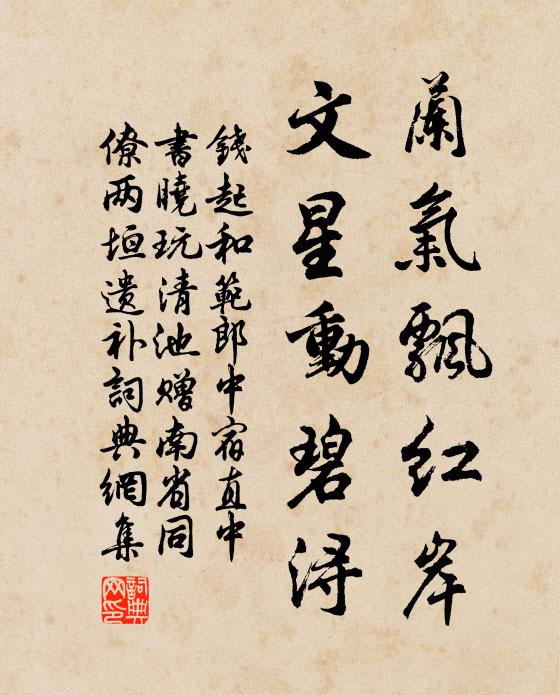 蘭氣飄紅岸
文星動碧潯
錢起和範郎中宿直中
書曉玩清池贈南省同
僚两垣遗补詞典網集
詞典网印